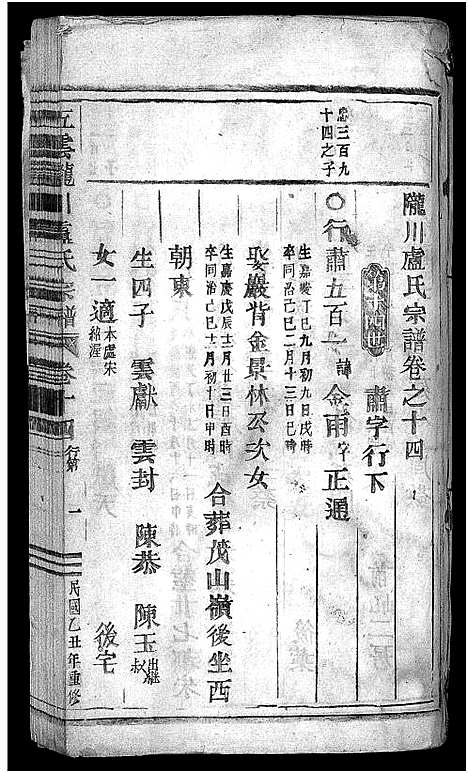 隴川盧氏宗譜卷之十四
肅字行下
忠三百九
十四之子
○行肅五百一 諱金雨 字正通
生嘉慶丁巳九月初九日戌時
卒同治己巳二月十三日巳時
娶巖背金景林公次女
生嘉慶戊辰十二月廿三日酉時
卒同治己巳十一月初十日申時
合葬茂山嶺後坐西
朝東
生四子 雲獻 雲封 陳恭 陳玉 出繼叔
女一適 本處宋
後宅
五雲隴川盧氏宗譜 卷十四 行第 一 民國乙丑年重修